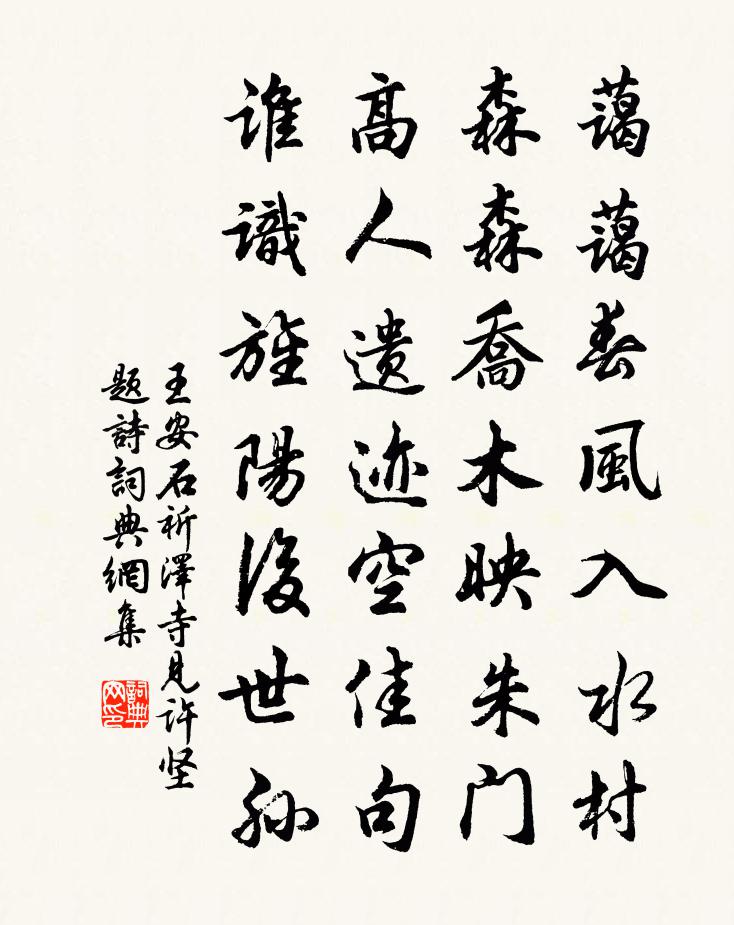 藹藹春風入水村
森森喬木映朱門
高人遺迹空佳句
誰識旌陽後世孫
王安石祈澤寺見许坚
题詩詞典網集
詞典
网印